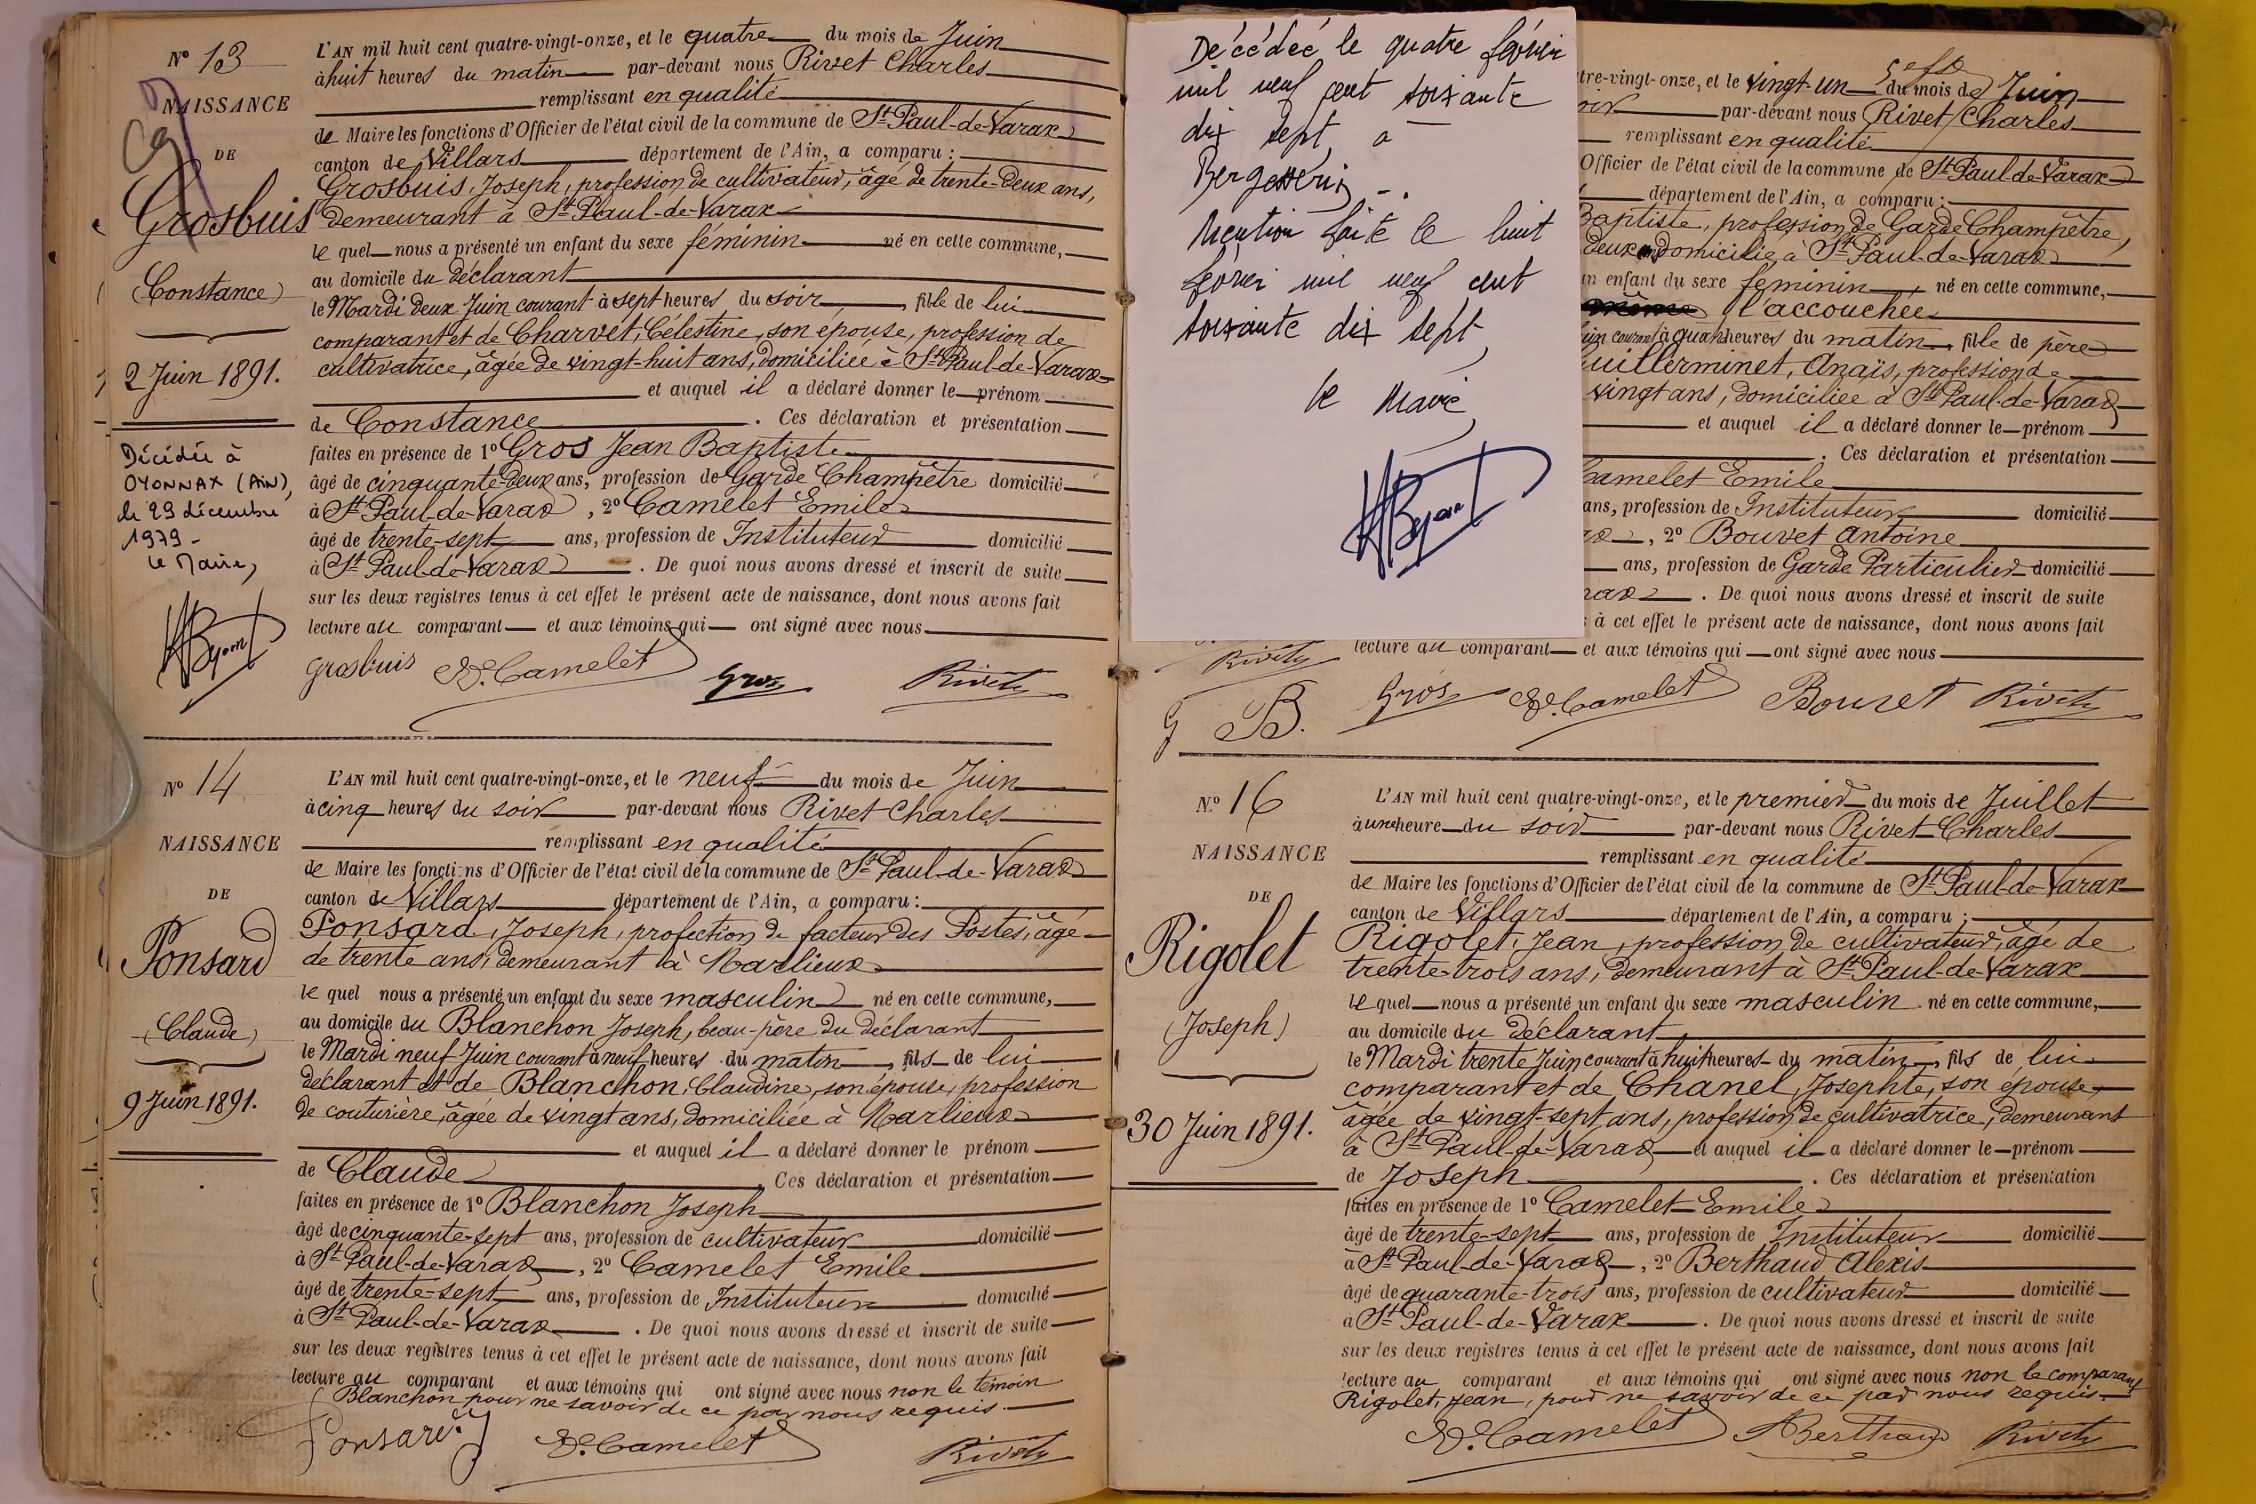 Nº 13
NAISSANCE
DE
Grosbuis
(Constance)
2 Juin 1891.
Décédée à
OYONNAX (AiN),
le 29 décembre
1979 -
Le Maire,
L'AN mil huit cent quatre-vingt-onze, et le quatre du mois de Juin
à huit heures du matin par-devant nous Rivet Charles
remplissant en qualité
de Maire les fonctions d'Officier de l'état civil de la commune de St Paul-de-Varax
canton de Villars département de l'Ain, a comparu :
Grosbuis, Joseph, profession de cultivateur, âgé de trente-deux ans,
demeurant à St Paul-de-Varax
le quel nous a présenté un enfant du sexe féminin né en cette commune,
au domicile du déclarant
le Mardi deux Juin courant à sept heures du soir fille de lui
comparant et de Charvet, Célestine, son épouse, profession de
cultivatrice, âgée de vingt-huit ans, domiciliée à St Paul-de-Varax
et auquel il a déclaré donner le prénom
de Constance . Ces déclaration et présentation
faites en présence de 1º Gros Jean Baptiste
âgé de cinquante-deux ans, profession de Garde Champêtre domicilié
à St Paul-de-Varax , 2º Camelet Emile
âgé de trente-sept ans, profession de Instituteur domicilié
à St Paul-de-Varax . De quoi nous avons dressé et inscrit de suite
sur les deux registres tenus à cet effet le présent acte de naissance, dont nous avons fait
lecture au comparant et aux témoins qui ont signé avec nous
Grosbuis E. Camelet Gros Rivet
Nº 14
NAISSANCE
DE
Ponsard
(Claude)
9 Juin 1891.
L'AN mil huit cent quatre-vingt-onze, et le neuf du mois de Juin
à cinq heures du soir par-devant nous Rivet Charles
remplissant en qualité
de Maire les fonctions d'Officier de l'état civil de la commune de St Paul-de-Varax
canton de Villars département de l'Ain, a comparu :
Ponsard, Joseph, profection de facteur des Postes, âgé
de trente ans, demeurant à Marlieux
le quel nous a présenté un enfant du sexe masculin né en cette commune,
au domicile du Blanchon Joseph, beau-père du déclarant
le Mardi neuf Juin courant à neuf heures du matin, fils de lui
déclarant et de Blanchon, Claudine, son épouse, profession
de couturière, âgée de vingt ans, domiciliée à Marlieux
et auquel il a déclaré donner le prénom
de Claude Ces déclaration et présentation
faites en présence de 1º Blanchon Joseph
âgé de cinquante-sept ans, profession de cultivateur domicilié
à St Paul-de-Varax , 2º Camelet Emile
âgé de trente-sept ans, profession de Instituteur domicilié
à St Paul-de-Varax . De quoi nous avons dressé et inscrit de suite
sur les deux registres tenus à cet effet le présent acte de naissance, dont nous avons fait
lecture au comparant et aux témoins qui ont signé avec nous non le témoin
Blanchon pour ne savoir de ce par nous requis.
Ponsard E. Camelet Rivet
Décédée le quatre février
mil neuf cent soixante
dix sept à
Mention faite le huit
février mil neuf cent
soixante dix sept
Le Maire,
tre-vingt-onze, et le vingt-un du mois de Juin
par-devant nous Rivet Charles
remplissant en qualité
Officier de l'état civil de la commune de St Paul-de-Varax
département de l'Ain, a comparu :
Baptiste, profession de Garde Champêtre,
deux ans domicilié à St Paul-de-Varax
un enfant du sexe féminin, né en cette commune,
l'accouchée
Juin courant à quatre heures du matin, fille de père
uillerminet, Anaïs, profession de
vingt ans, domiciliée à St Paul-de-Varax
et auquel il a déclaré donner le prénom
. Ces déclaration et présentation
Camelet Emile
ans, profession de Instituteur domicilié
, 2º Bouvet Antoine
ans, profession de Garde Particulier domicilié
. De quoi nous avons dressé et inscrit de suite
à cet effet le présent acte de naissance, dont nous avons fait
lecture au comparant et aux témoins qui ont signé avec nous
Rivet
G B. Gros E. Camelet Bouvet Rivet
Nº 16
NAISSANCE
DE
Rigolet
(Joseph)
30 Juin 1891.
L'AN mil huit cent quatre-vingt-onze, et le premier du mois de Juillet
à une heure du soir par-devant nous Rivet Charles
remplissant en qualité
de Maire les fonctions d'Officier de l'état civil de la commune de St Paul-de-Varax
canton de Villars département de l'Ain, a comparu :
Rigolet, Jean, profession de cultivateur, âgé de
trente-trois ans, demeurant à St Paul-de-Varax
le quel nous a présenté un enfant du sexe masculin né en cette commune,
au domicile du déclarant
le Mardi trente Juin courant à huit heures du matin, fils de lui
comparant et de Chanel, Josephte, son épouse,
âgée de vingt-sept ans, profession de cultivatrice, demeurant
à St Paul-de-Varax et auquel il a déclaré donner le prénom
de Joseph . Ces déclaration et présentation
faites en présence de 1º Camelet Emile
âgé de trente-sept ans, profession de Instituteur domicilié
à St Paul-de-Varax , 2º Berthaud Alexis
âgé de quarante-trois ans, profession de cultivateur domicilié
à St Paul-de-Varax . De quoi nous avons dressé et inscrit de suite
sur les deux registres tenus à cet effet le présent acte de naissance, dont nous avons fait
lecture au comparant et aux témoins qui ont signé avec nous non le comparant
Rigolet, Jean, pour ne savoir de ce par nous requis.
E. Camelet ABerthaud Rivet